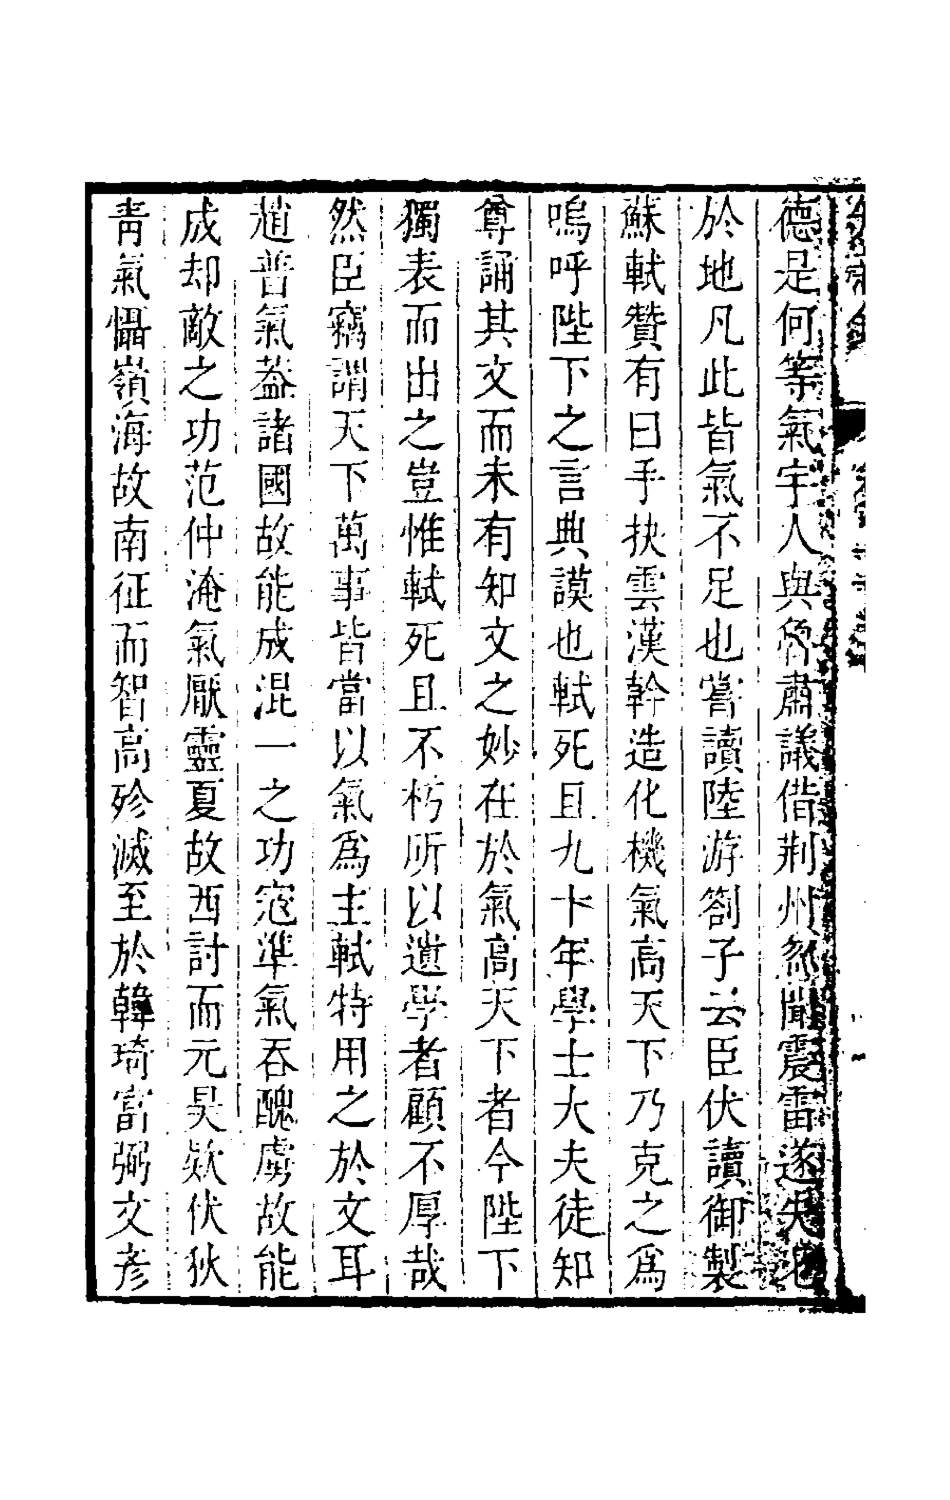 德是何等氣宇人與魯肅議借荆州忽聞震雷遂失匕
於地凡此皆氣不足也嘗讀陸游劄子云臣伏讀御製
蘇軾贊有曰手抉雲漢幹造化機氣高天下乃克之爲
嗚呼陛下之言典謨也軾死且九十年學士大夫徒知
尊誦其文而未有知文之妙在於氣高天下者今陛下
獨表而出之豈惟軾死且不朽所以遺學者顧不厚哉
然臣竊謂天下萬事皆當以氣爲主軾特用之於文耳
趙普氣葢諸國故能成混一之功寇準氣吞醜虜故能
成却敵之功范仲淹氣厭靈夏故西討而元昊欵伏狄
青氣懾嶺海故南征而智高殄滅至於韓琦富弼文彥